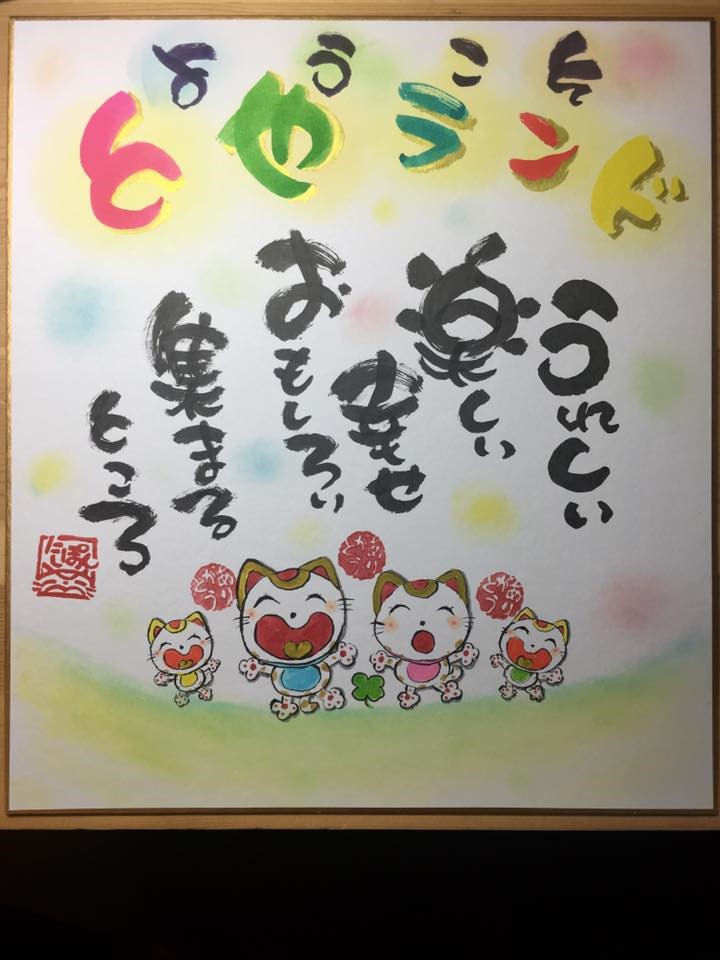 ようこそ
とやランド
うれしい
楽しい
幸せ
おもしろい
集まる
ところ
ありがとう
ありがとう
ありがとう